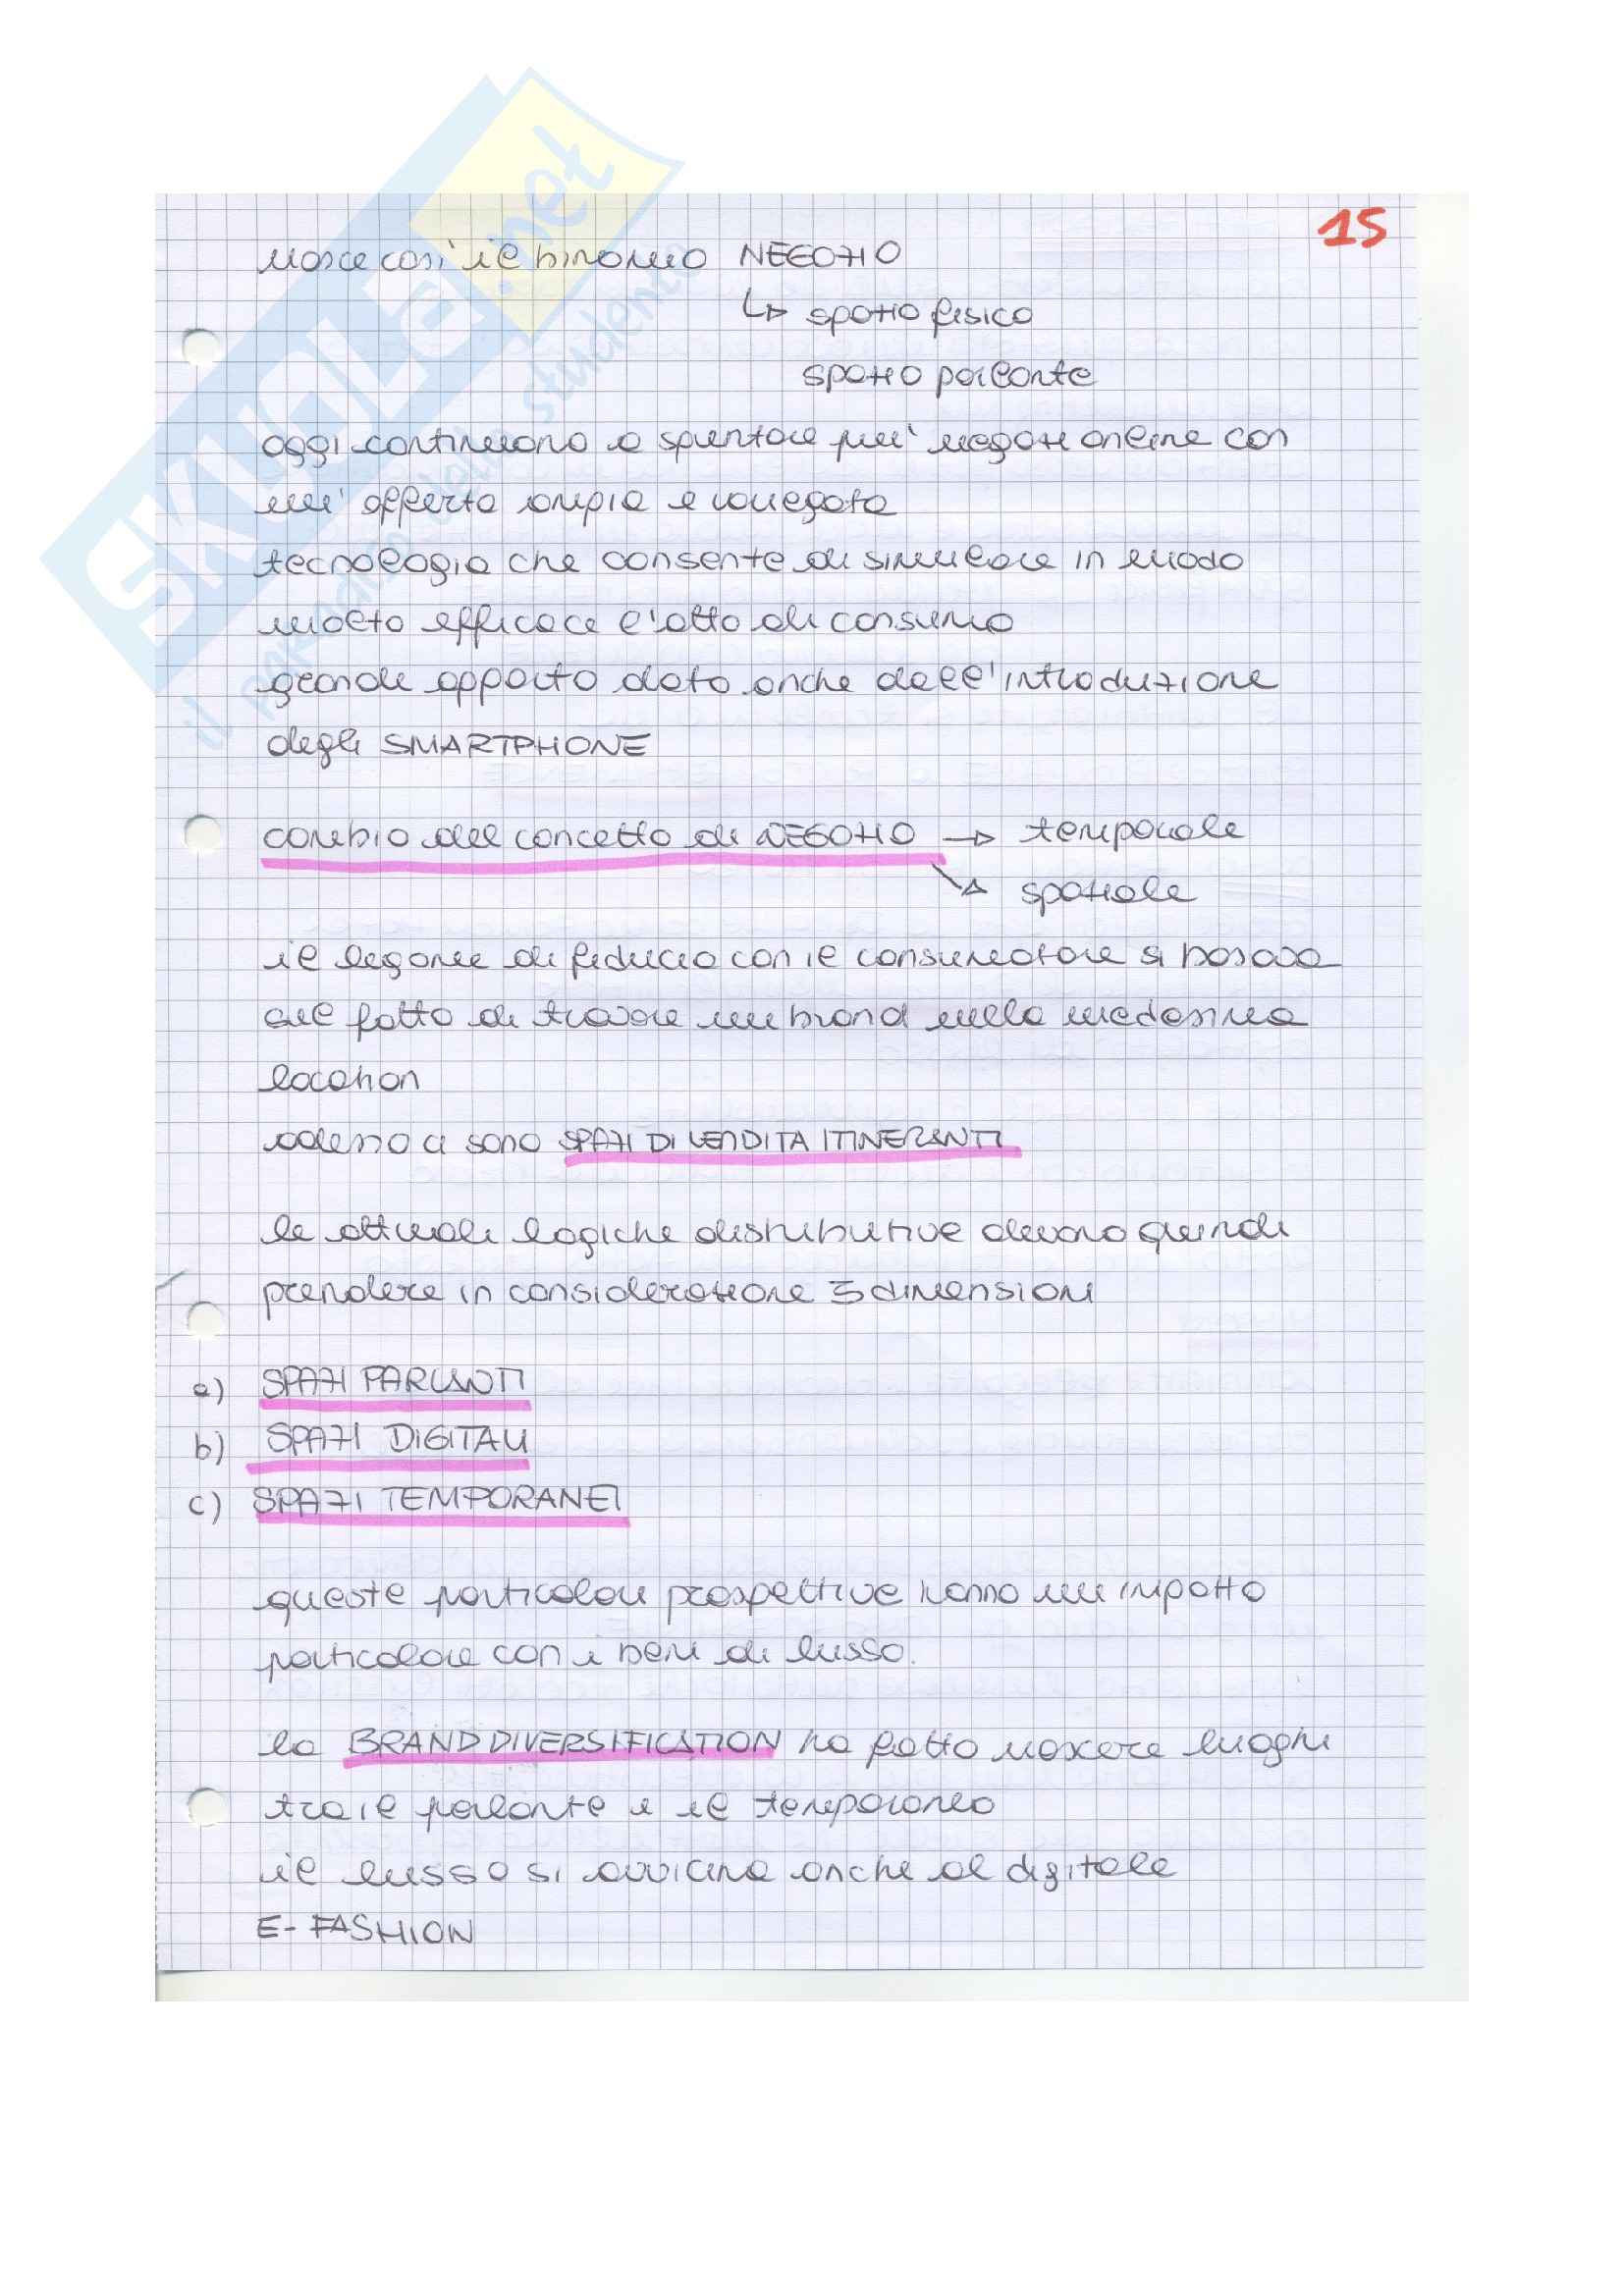 15
nasce così il binomio NEGOZIO
↳ spazio fisico
spazio parlante
oggi continuano a spuntare più negozi online con
un'offerta ampia e variegata
tecnologia che consente di simulare in modo
molto efficace l'atto di consumo
grande apporto dato anche dall'introduzione
degli SMARTPHONE
cambio del concetto di NEGOZIO → temporale
↘ spaziale
il legame di fiducia con il consumatore si basava
sul fatto di trovare un brand nella medesima
location
adesso ci sono SPAZI DI VENDITA ITINERANTI
le attuali logiche distributive devono quindi
prendere in considerazione 3 dimensioni
a) SPAZI PARLANTI
b) SPAZI DIGITALI
c) SPAZI TEMPORANEI
queste particolari prospettive hanno un impatto
particolare con i beni di lusso.
la BRAND DIVERSIFICATION ha fatto nascere luoghi
tra il parlante e il temporaneo
il lusso si avvicina anche al digitale
E-FASHION
SKUOLA.net
il paradiso dello studente